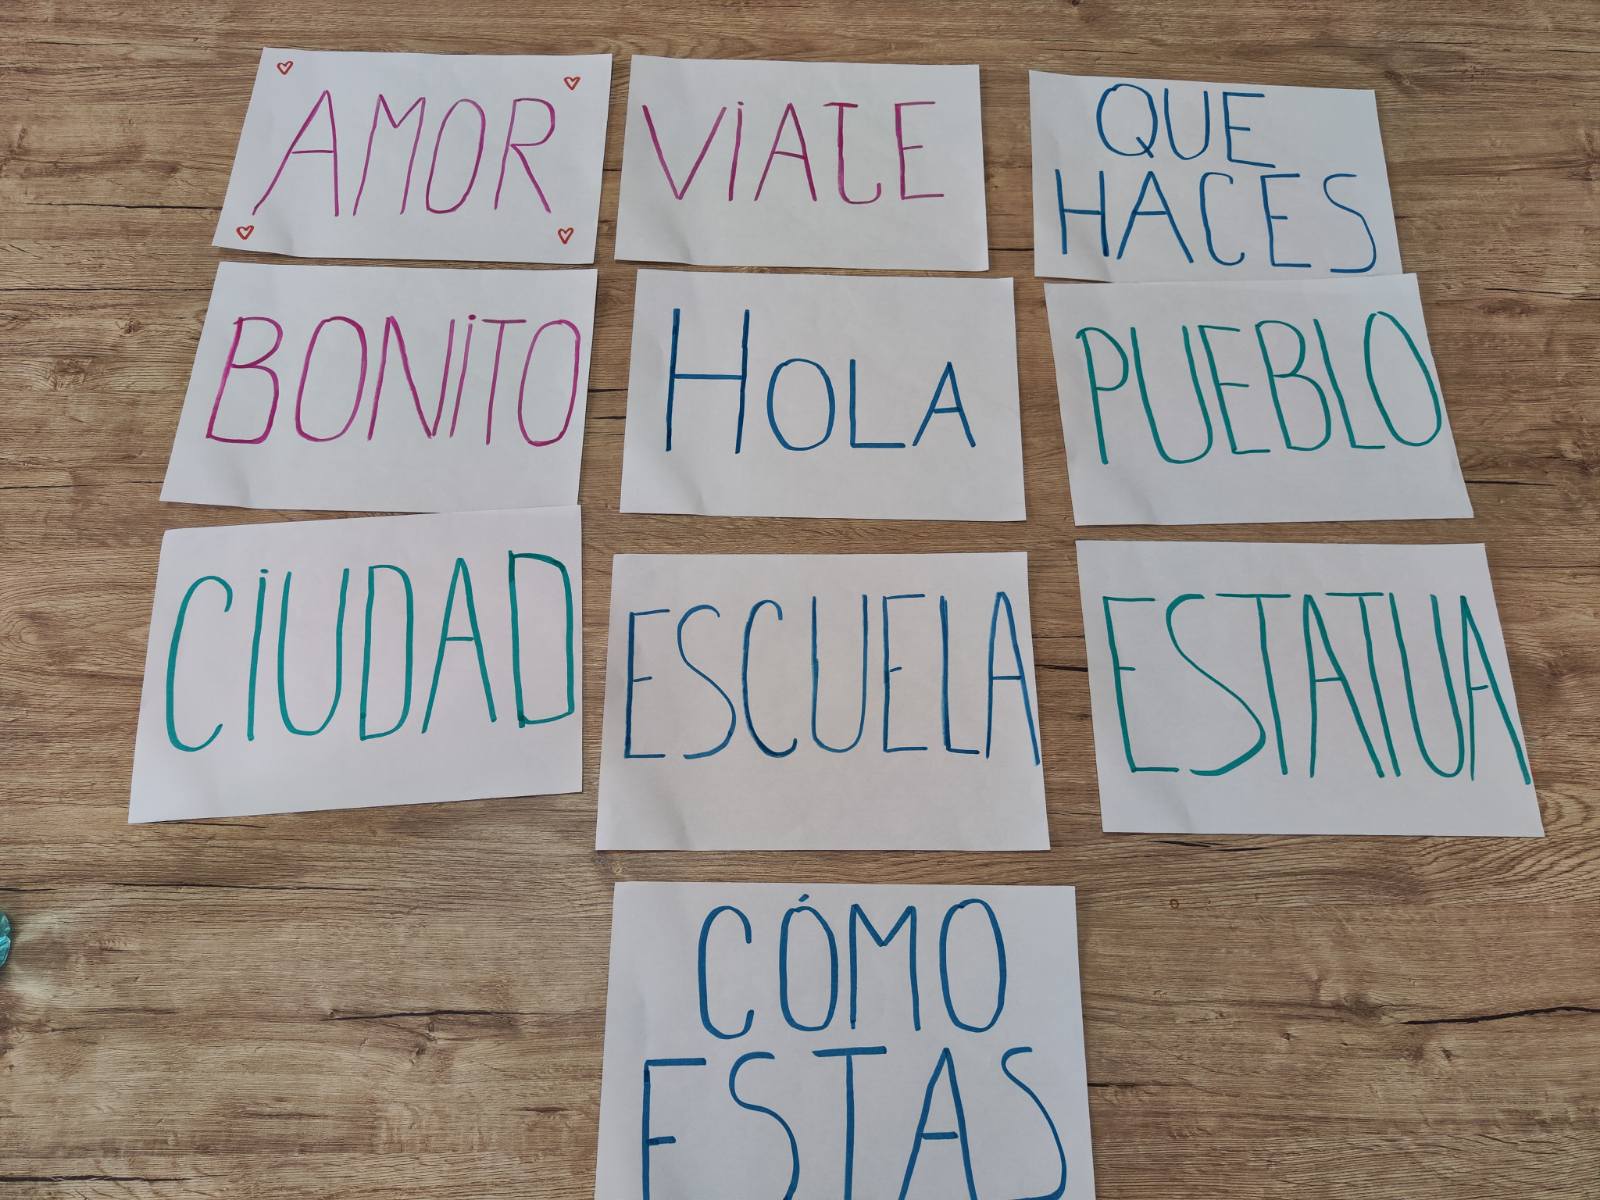 AMOR
VIAJE
QUE
HACES
BONITO
HOLA
PUEBLO
CIUDAD
ESCUELA
ESTATUA
CÓMO
ESTAS